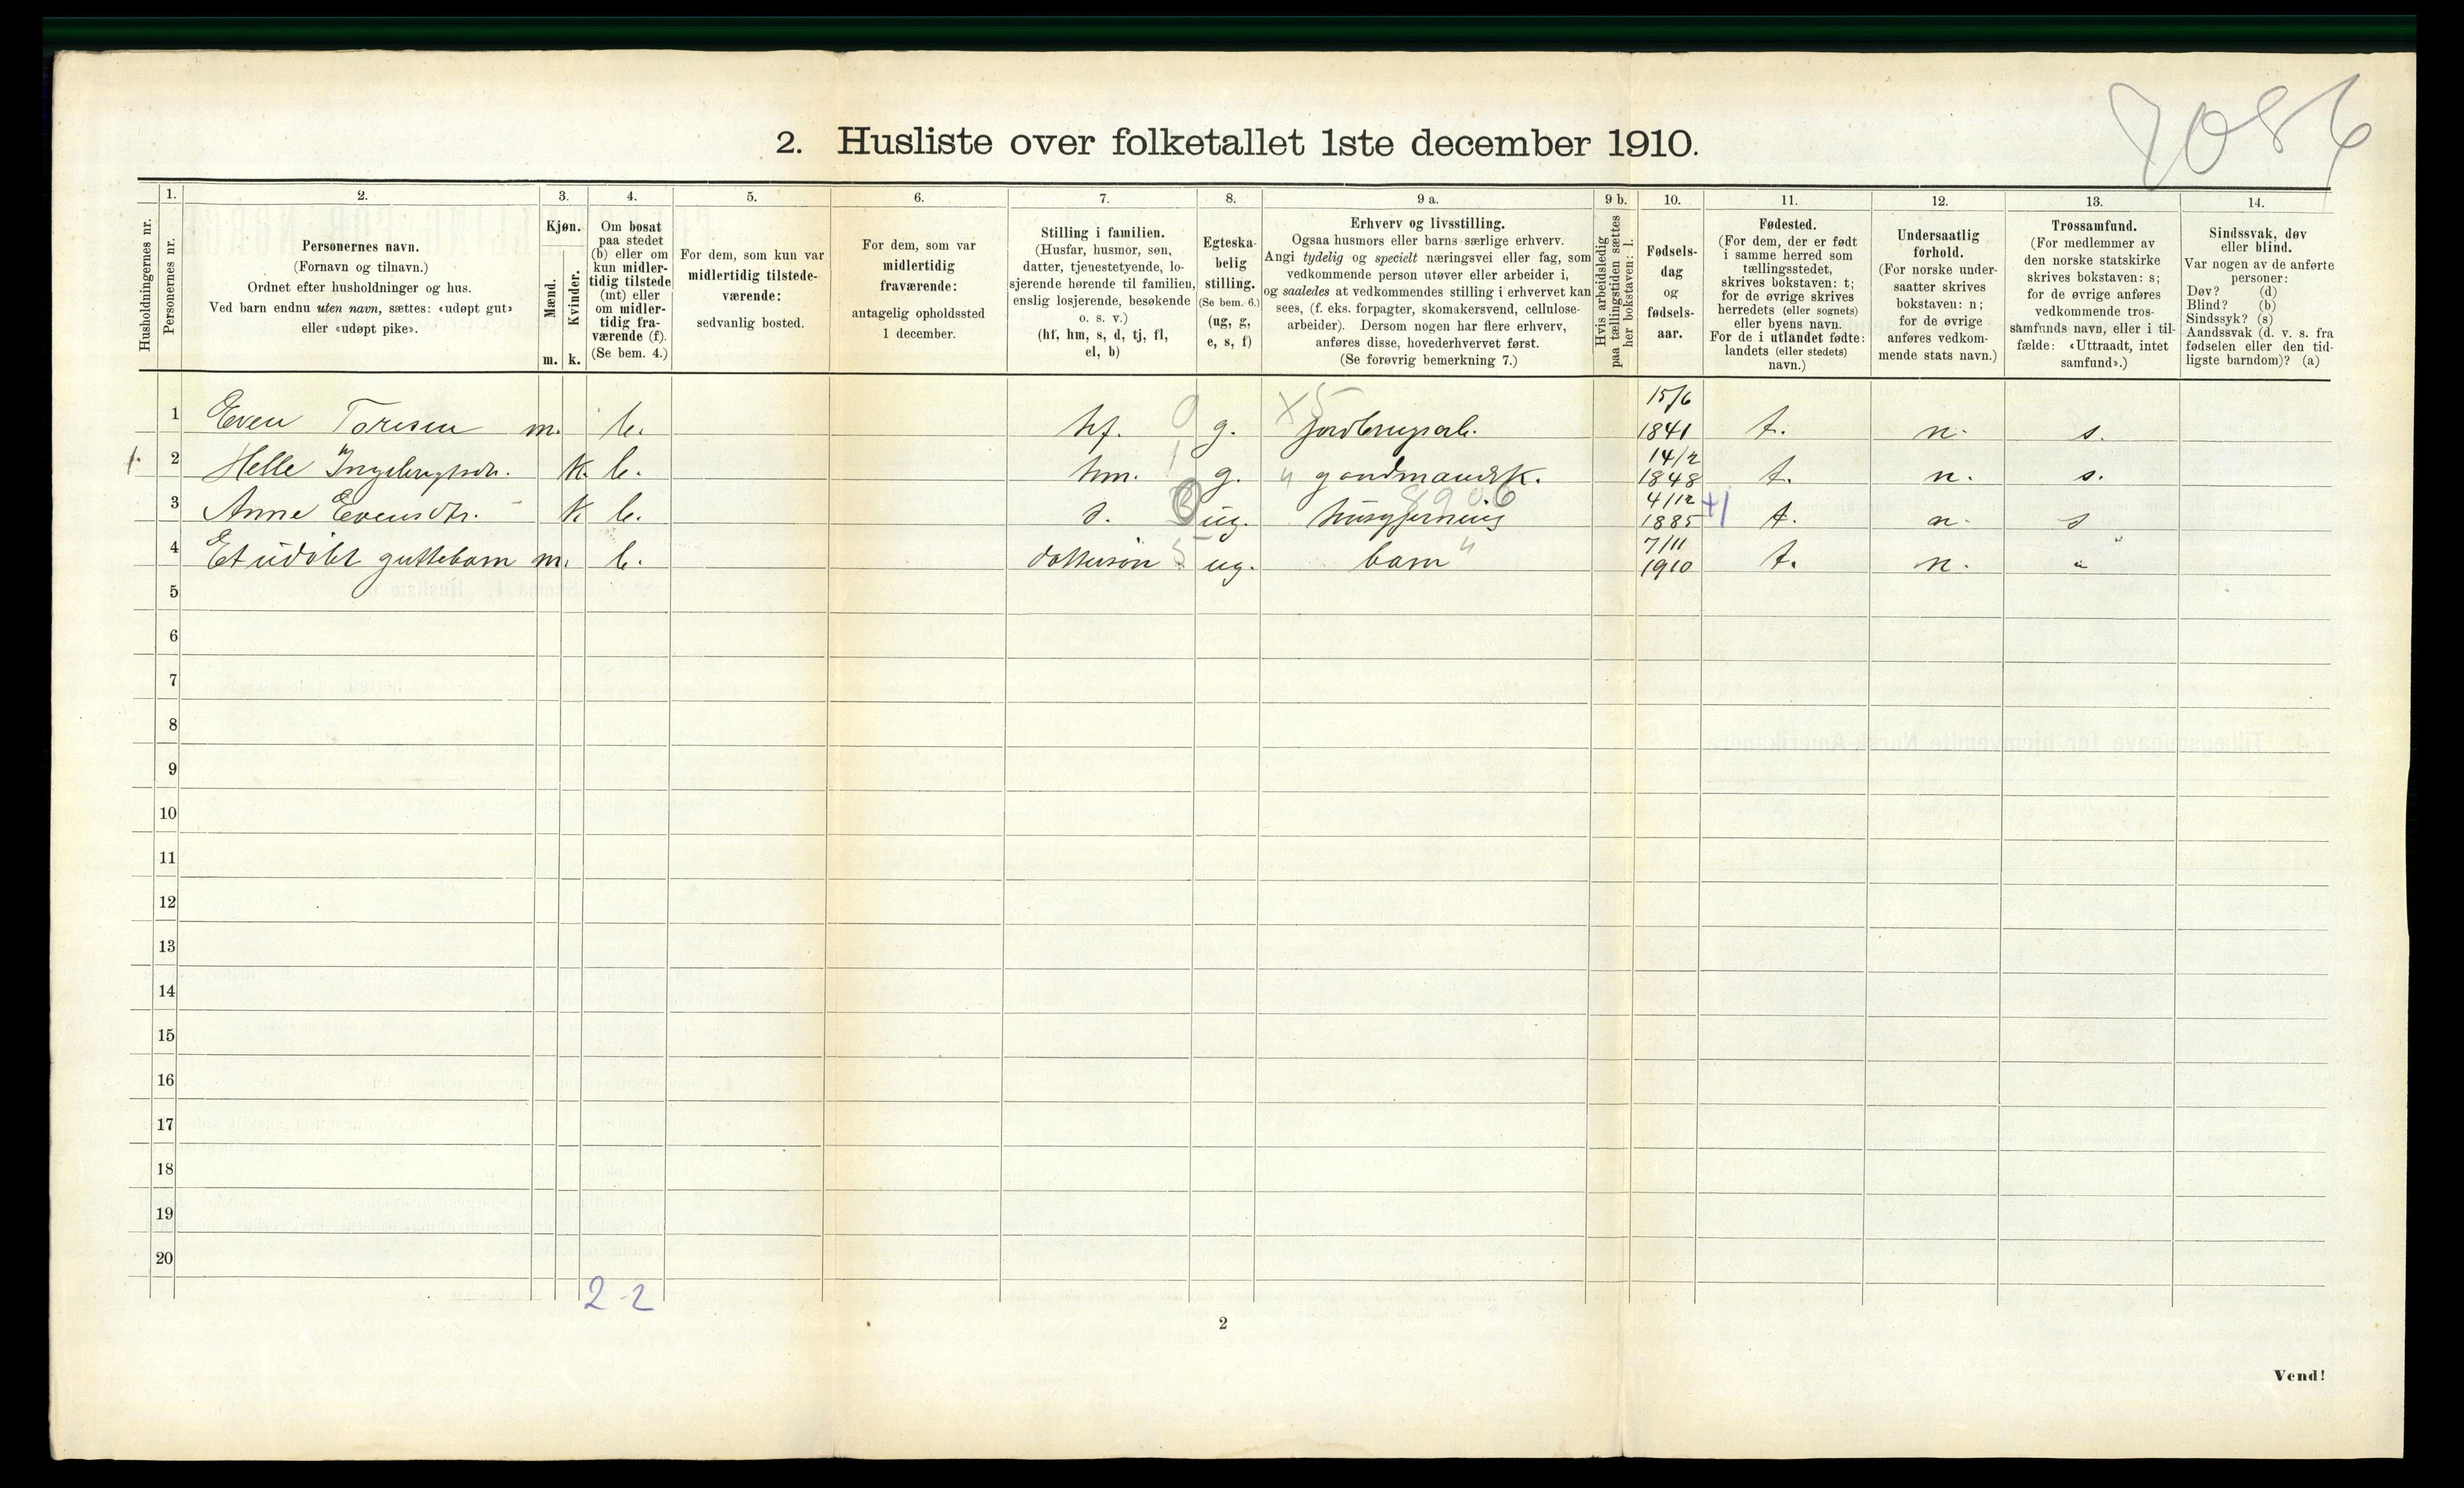 2. Husliste over folketallet 1ste december 1910.
Husholdningernes nr.
1.
Personernes nr.
2.
Personernes navn.
(Fornavn og tilnavn.)
Ordnet efter husholdninger og hus.
Ved barn endnu uten navn, sættes: «udøpt gut»
eller «udøpt pike».
3.
Kjøn.
Mænd.
Kvinder.
m. k.
4.
Om bosat
paa stedet
(b) eller om
kun midler-
tidig tilstede
(mt) eller
om midler-
tidig fra-
værende (f).
(Se bem. 4.)
5.
For dem, som kun var
midlertidig tilstede-
værende:
sedvanlig bosted.
6.
For dem, som var
midlertidig
fraværende:
antagelig opholdssted
1 december.
7.
Stilling i familien.
(Husfar, husmor, søn,
datter, tjenestetyende, lo-
sjerende hørende til familien,
enslig losjerende, besøkende
o. s. v.)
(hf, hm, s, d, tj, fl,
el, b)
8.
Egteska-
belig
stilling.
(Se bem. 6.)
(ug, g,
e, s, f)
9 a.
Erhverv og livsstilling.
Ogsaa husmors eller barns særlige erhverv.
Angi tydelig og specielt næringsvei eller fag, som
vedkommende person utøver eller arbeider i,
og saaledes at vedkommendes stilling i erhvervet kan
sees, (f. eks. forpagter, skomakersvend, cellulose-
arbeider). Dersom nogen har flere erhverv,
anføres disse, hovederhvervet først.
(Se forøvrig bemerkning 7.)
9 b.
Hvis arbeidsledig
paa tællingstiden sættes
her bokstaven: l.
10.
Fødsels-
dag
og
fødsels-
aar.
11.
Fødested.
(For dem, der er født
i samme herred som
tællingsstedet,
skrives bokstaven: t;
for de øvrige skrives
herredets (eller sognets)
eller byens navn.
For de i utlandet fødte:
landets (eller stedets)
navn.)
12.
Undersaatlig
forhold.
(For norske under-
saatter skrives
bokstaven: n;
for de øvrige
anføres vedkom-
mende stats navn.)
13.
Trossamfund.
(For medlemmer av
den norske statskirke
skrives bokstaven: s;
for de øvrige anføres
vedkommende tros-
samfunds navn, eller i til-
fælde: «Uttraadt, intet
samfund».)
14.
Sindssvak, døv
eller blind.
Var nogen av de anførte
personer:
Døv? (d)
Blind? (b)
Sindssyk? (s)
Aandssvak (d. v. s. fra
fødselen eller den tid-
ligste barndom)? (a)
1 Even Toresen m. b. hf. 0 g. X5 15/6 1841 t. n. s.
1. 2 Helle k. b. hm. 1 g. " gaardmandsk. 14/2 1848 t. n. s.
3 Anne Evensdtr. k b. d. ug. husgjerning 4/12 1885 t. n. s
4 Et udöbt guttebarn m. b. dattersön 5 ug. barn " 7/11 1910 t. n. "
5
6
7
8
9
10
11
12
13
14
15
16
17
18
19
20
2-2
2
Vend!